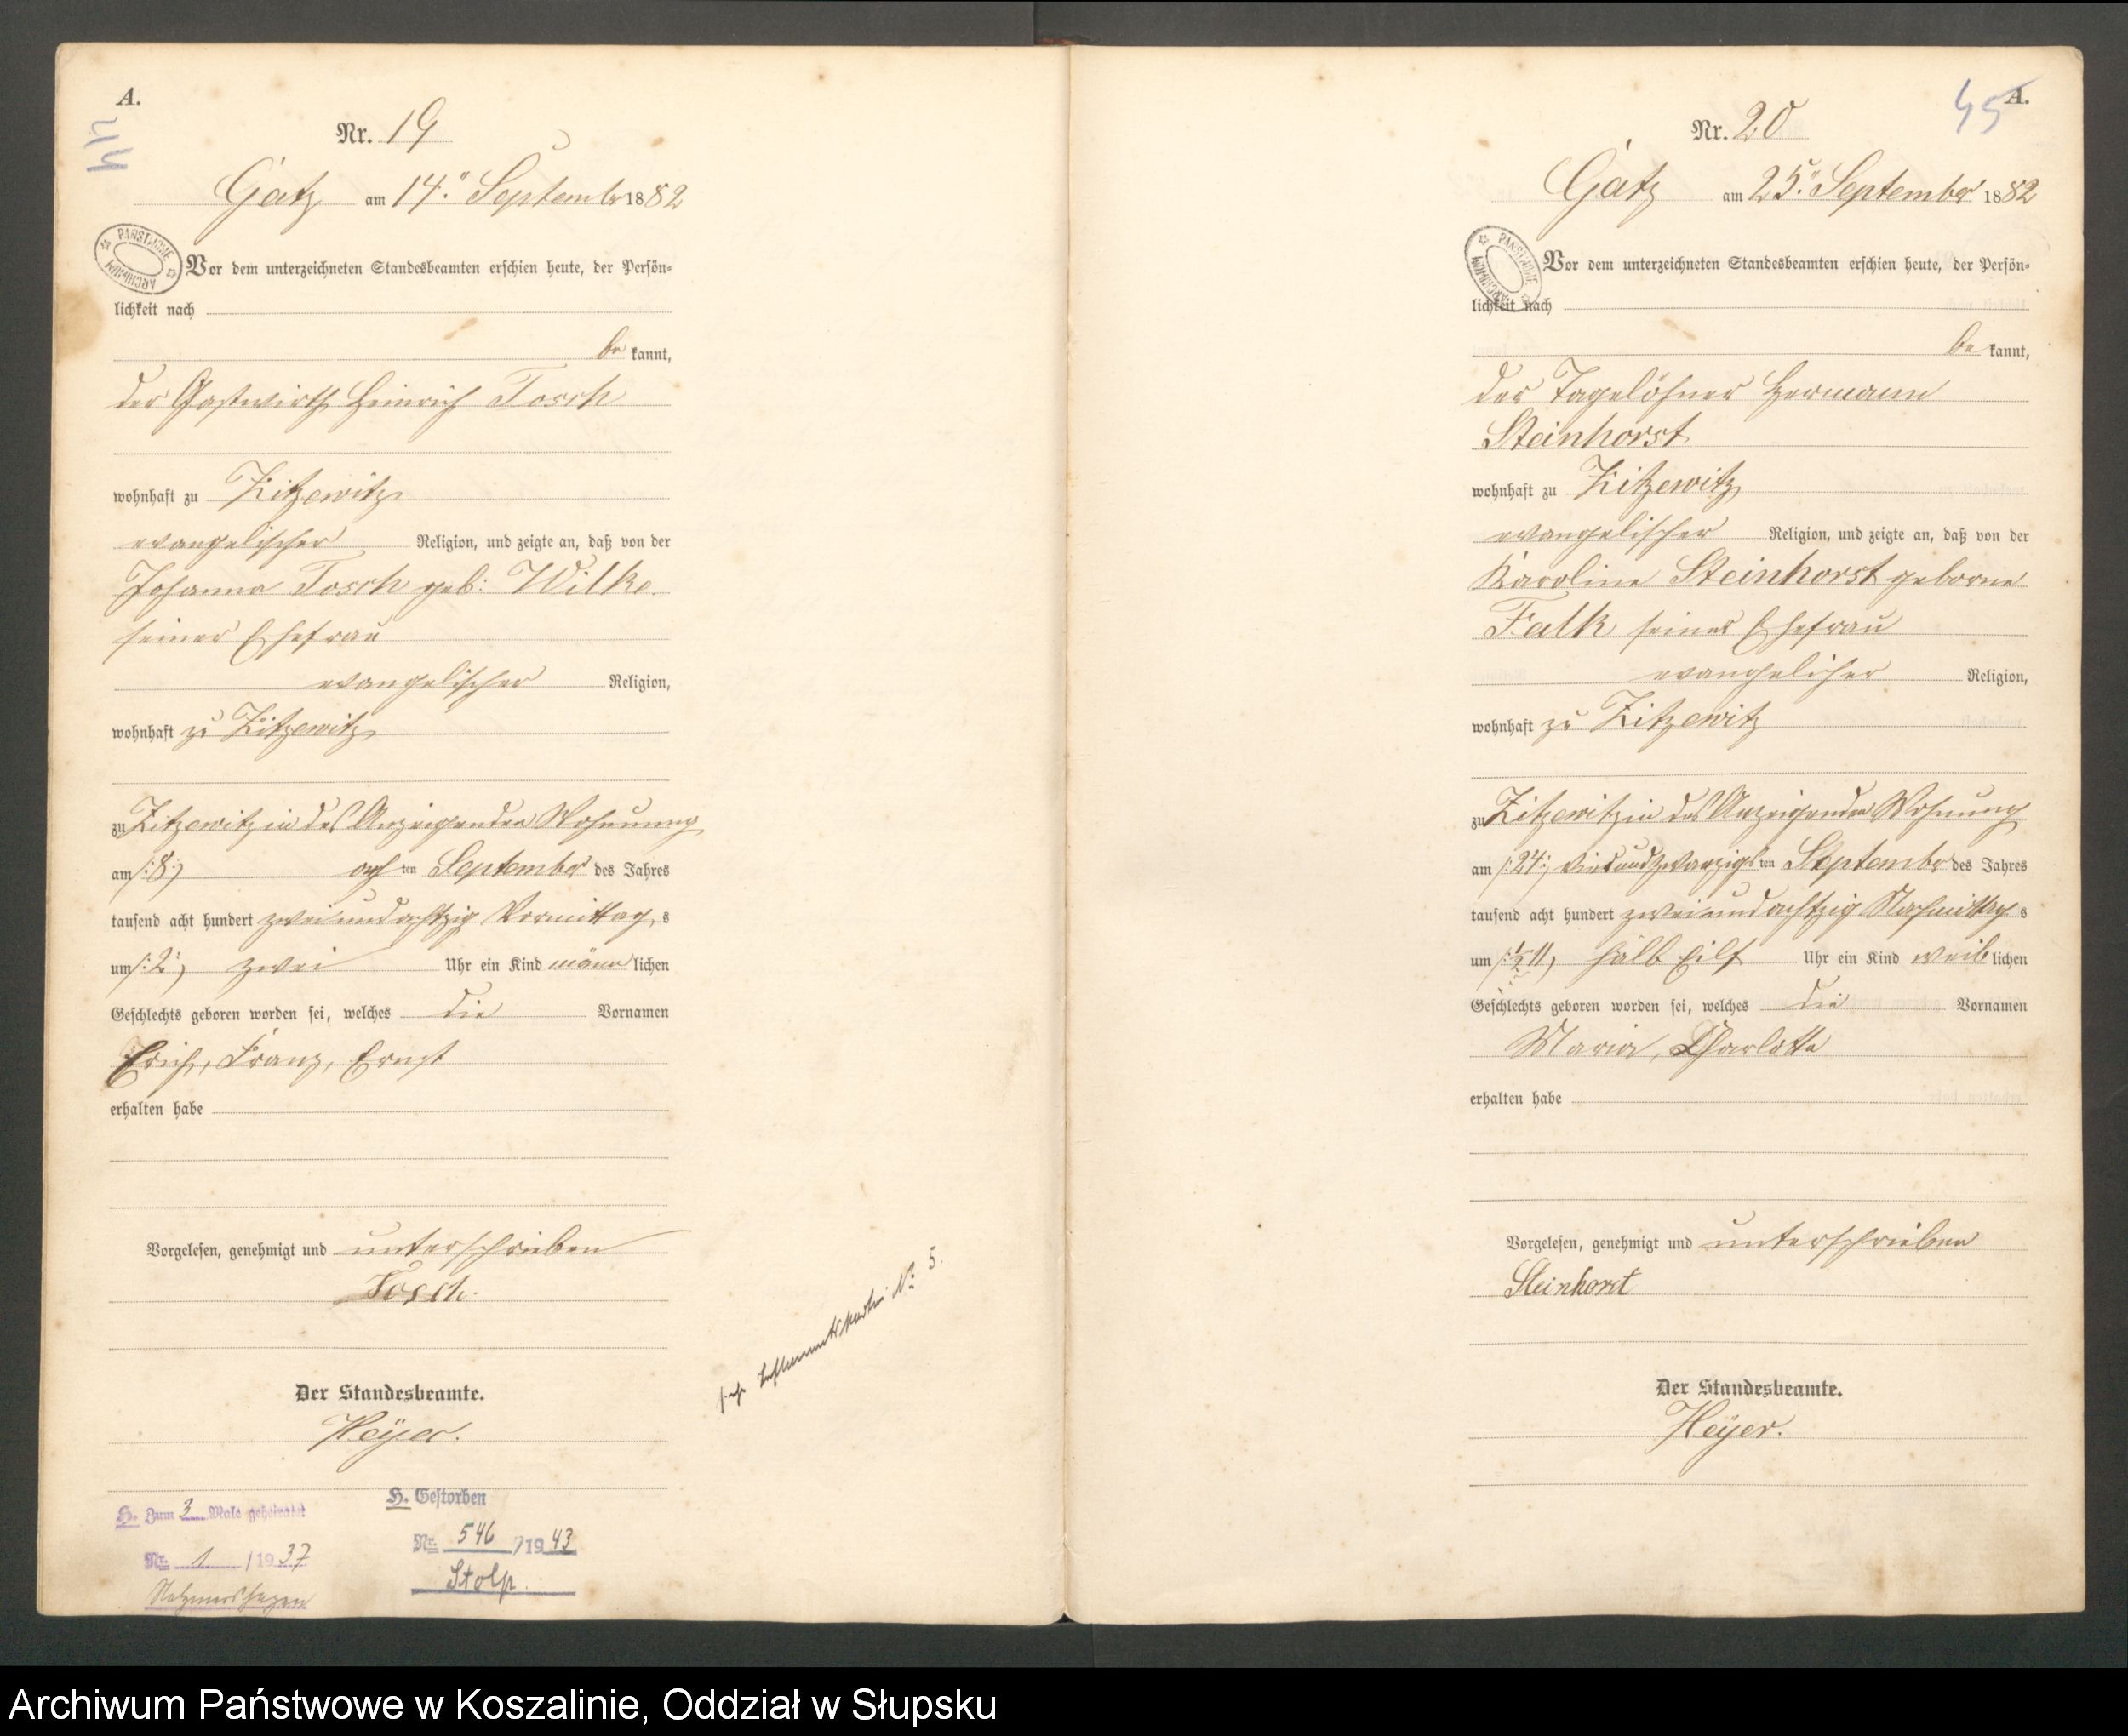 A.
44
Nr. 19
Gatz am 14." September 1882
PAŃSTWOWE ARCHIWUM
Vor dem unterzeichneten Standesbeamten erschien heute, der Persön=
lichkeit nach
be kannt,
der Gastwirth Heinrich Tosch
wohnhaft zu Zitzewitz
evangelischer Religion, und zeigte an, daß von der
Johanna Tosch geb: Wilke
seiner Ehefrau
evangelischer Religion,
wohnhaft zu Zitzewitz
zu Zitzewitz in des Anzeigenden Wohnung
am /:8:/ acht ten September des Jahres
tausend acht hundert zwei und achtzig Vormittag s
um /:2:/ zwei Uhr ein Kind männ lichen
Geschlechts geboren worden sei, welches die Vornamen
Erich, Franz, Ernst
erhalten habe
Vorgelesen, genehmigt und unterschrieben
Tosch.
Der Standesbeamte.
Heyer.
H. Zum 3 Male geheiratet
Nr. 1 /1937
H. Gestorben
Nr. 546 /1943
Stolp.
No 5.
A.
45
Nr. 20
Gatz am 25." September 1882
PAŃSTWOWE ARCHIWUM
Vor dem unterzeichneten Standesbeamten erschien heute, der Persön=
lichkeit nach
be kannt,
der Tagelöhner Hermann
Steinhorst
wohnhaft zu Zitzewitz
evangelischer Religion, und zeigte an, daß von der
Karoline Steinhorst geborne
Falk seiner Ehefrau
evangelicher Religion,
wohnhaft zu Zitzewitz
zu Zitzewitz in des Anzeigenden Wohnung
am /:24:/ vierundzwanzigs ten September des Jahres
tausend acht hundert zwei und achtzig Nachmittag s
um /:½11:/ halb Eilf Uhr ein Kind weib lichen
Geschlechts geboren worden sei, welches die Vornamen
Maria, Charlotte
erhalten habe
Vorgelesen, genehmigt und unterschrieben
Steinhorst
Der Standesbeamte.
Heyer.
Archiwum Państwowe w Koszalinie, Oddział w Słupsku